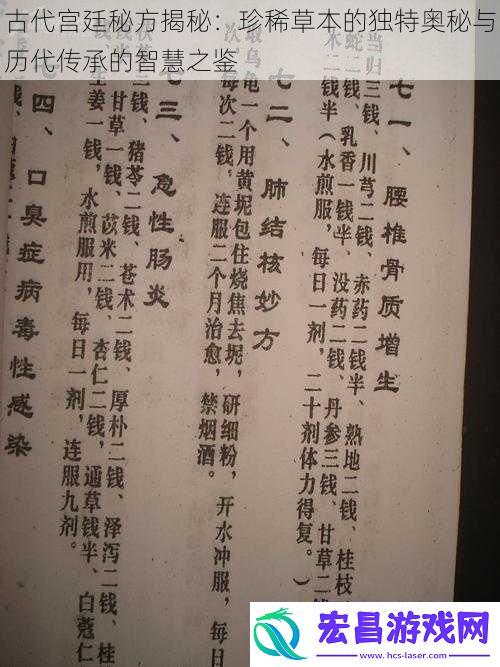 古代宫廷秘方揭秘：珍稀草本的独特奥秘与
历代传承的智慧之鉴
七一、腰椎骨质增生
当归三钱、川芎二钱、赤药二钱半、熟地二钱、桂枝
蛇二钱、乳香一钱半、没药二钱、丹参三钱、甘草二
二钱半（水煎服，每日一剂，二十剂体力得复。）
七二、肺结核妙方
取乌龟一个用黄坭包住烧焦去坭，研细粉，开水冲服，每日
每次二钱，连服二个月治愈，禁烟酒。
七三、急性肠炎
三钱、猪苓二钱、苍术二钱、厚朴二钱、泽泻二钱、桂
钱、甘草一钱、苡米二钱、杏仁二钱，通草钱半、白蔻仁
生姜一钱，水煎服用，每日一剂，连服九剂。
四、口臭症病毒性感染
宏昌游戏网
www.hcs-laser.com